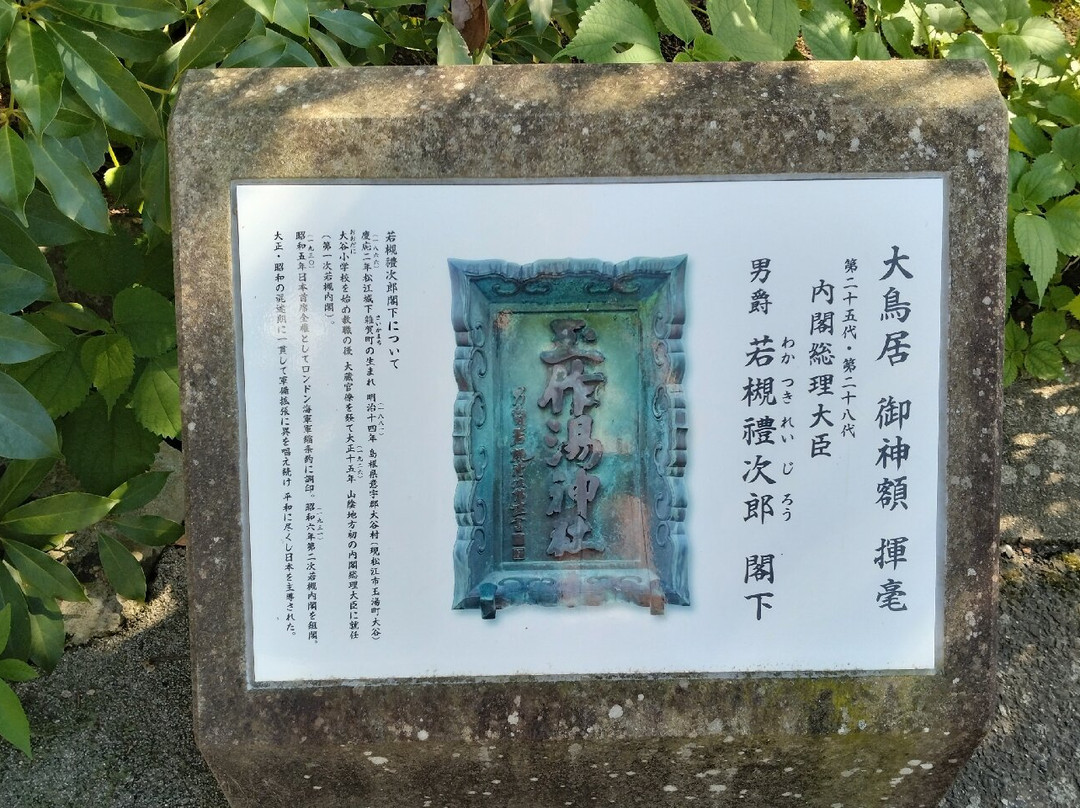 大鳥居 御神額 揮毫
第二十五代・第二十八代
内閣総理大臣
男爵 若槻禮次郎 閣下
わか つき れい じ ろう
玉作湯神社
若槻禮次郎閣下について
(一八六六)
慶応二年松江城下雑賀町の生まれ 明治十四年 島根県意宇郡大谷村(現松江市玉湯町大谷)
さいかまち
(一八八一)
大谷小学校を始め教職の後、大蔵官僚を経て大正十五年 山陰地方初の内閣総理大臣に就任
おおだに
(一九二六)
(第一次若槻内閣)。
昭和五年日本首席全権としてロンドン海軍軍縮条約に調印。昭和六年第二次若槻内閣を組閣。
(一九三〇)
(一九三一)
大正・昭和の混迷期に一貫して軍備拡張に異を唱え続け 平和に尽くし日本を主導された。